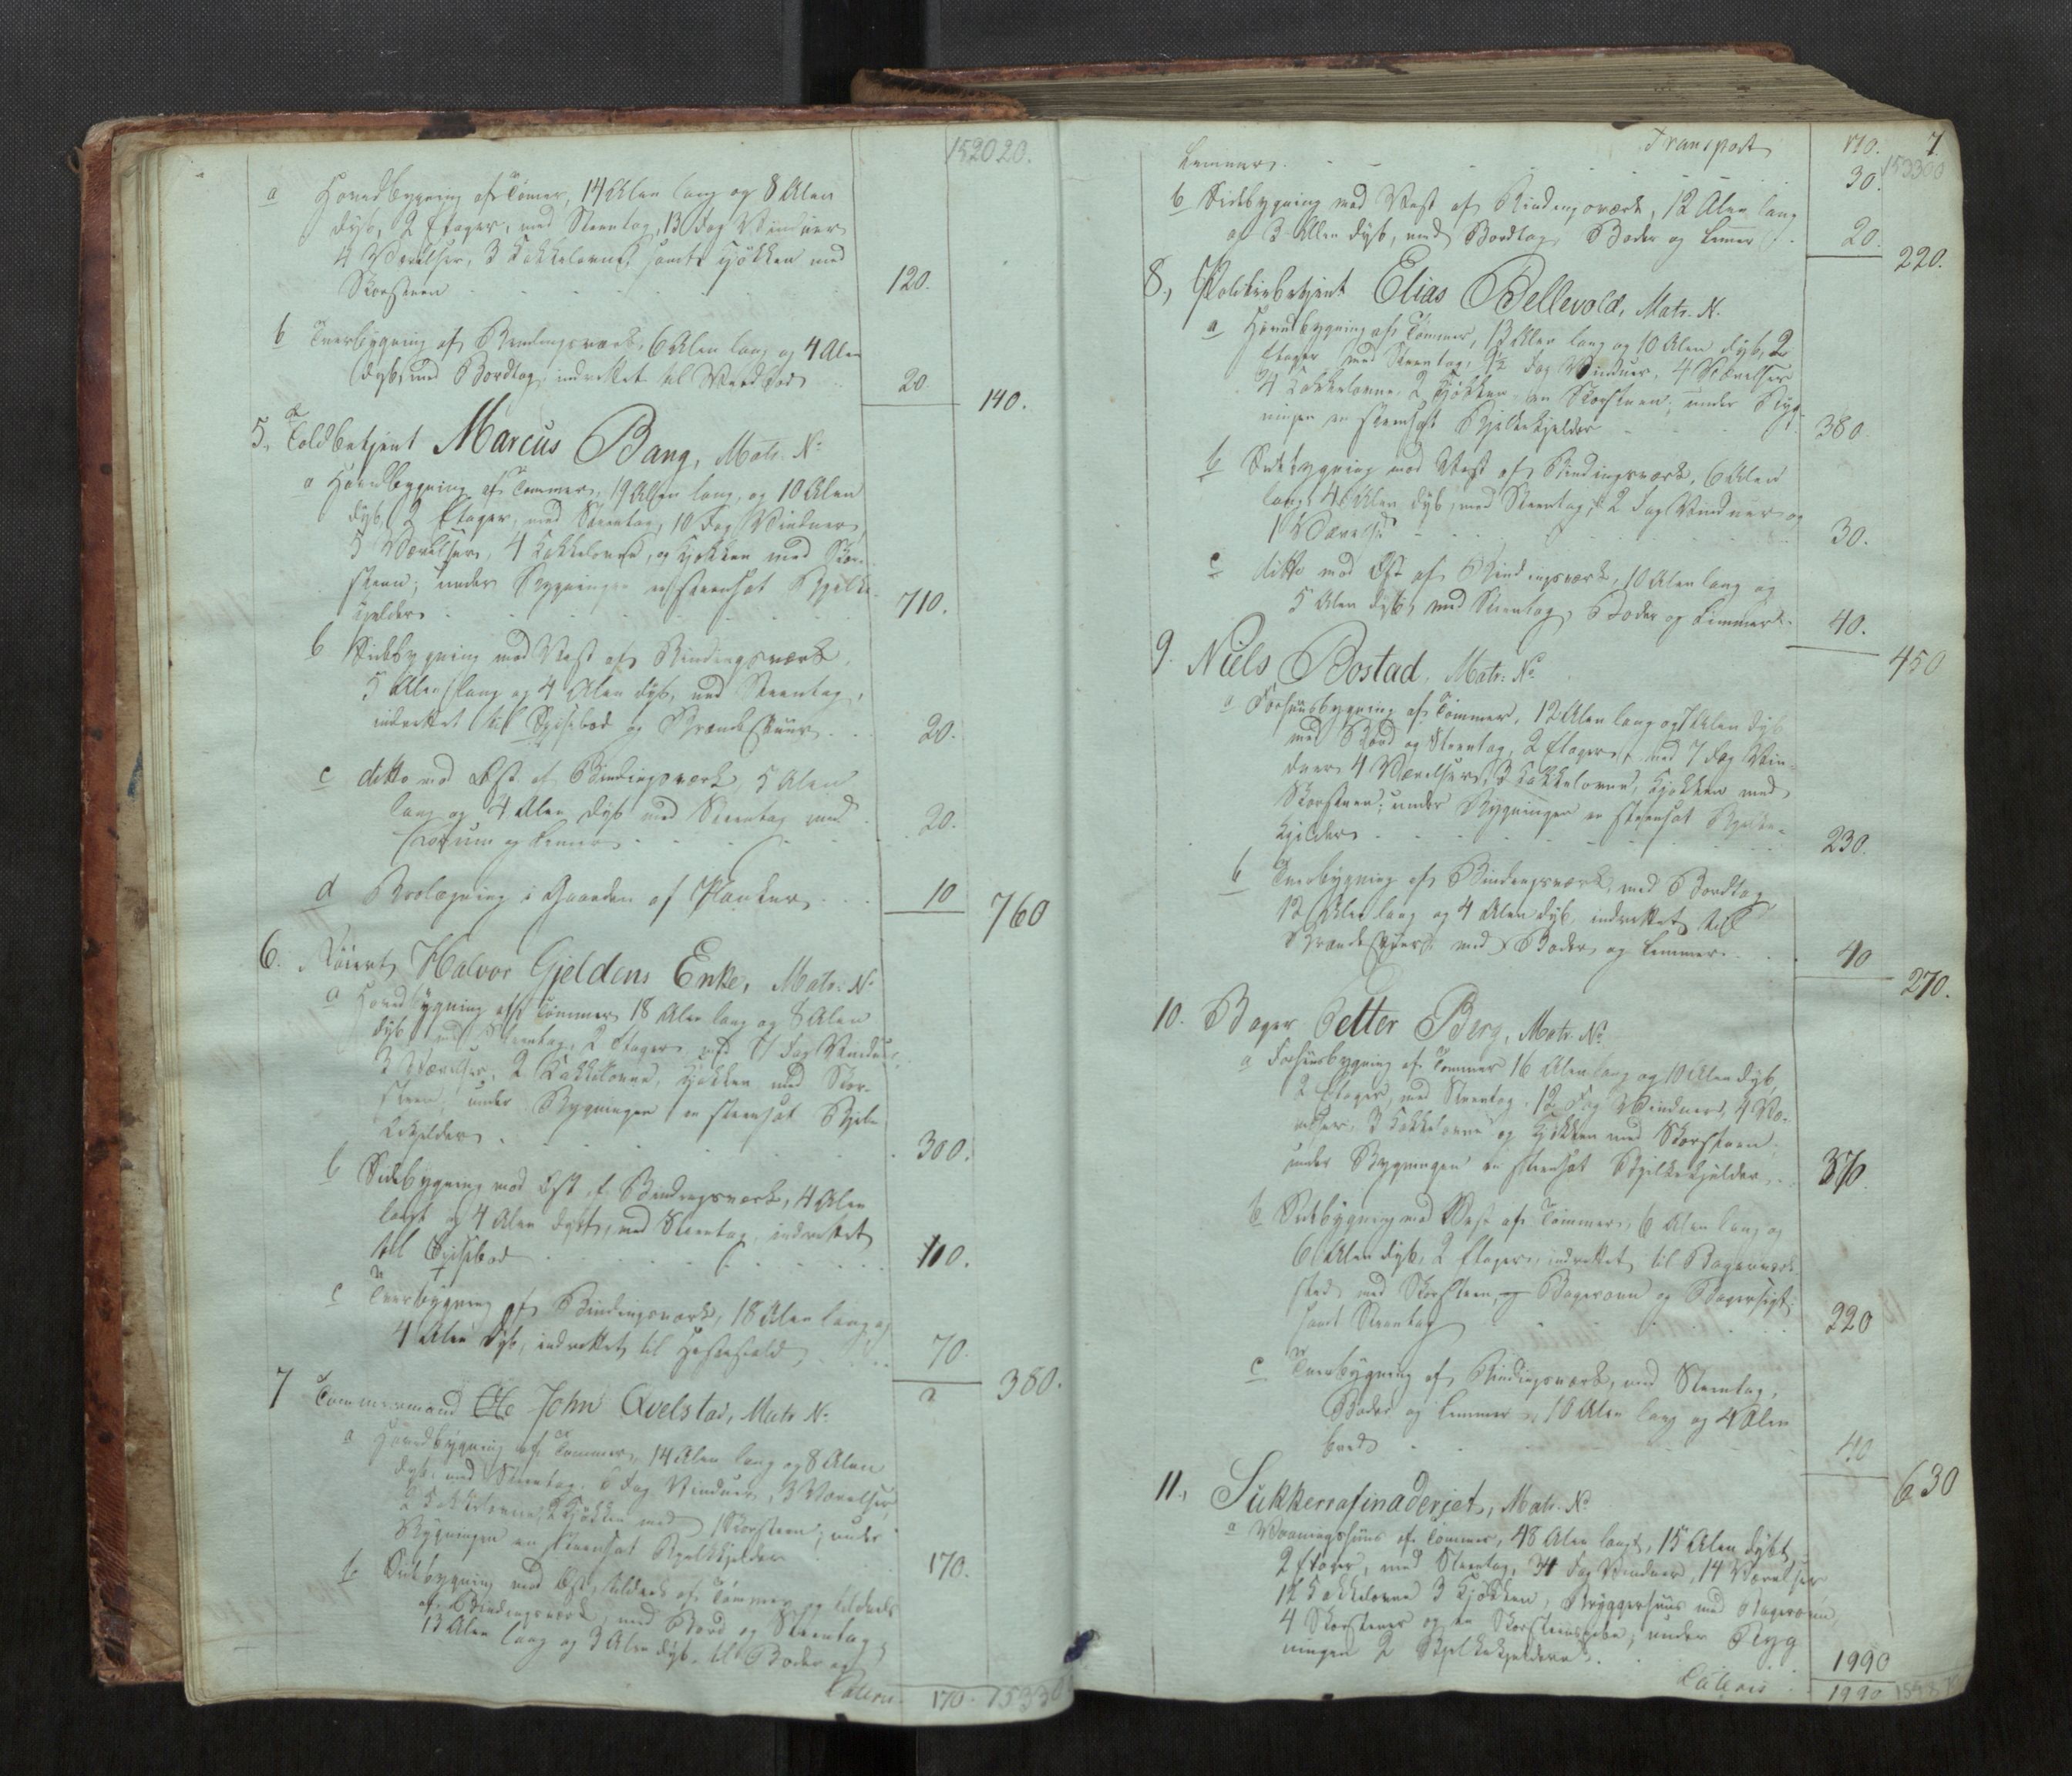 152020.
a Hovedbygning af Tømer, 14 Alen lang og 8 Alen
dyb, 2 Etager, med Steentag, 13 Fag Vinduer
4 Værelser, 3 Kakkelovne, samt Kjøkken med
Skorsteen 120.
b Tverbygning af Bindingsværk, 6 Alen lang og 4 Alen
dyb, med Bordtag, indrettet til Vedbod 20. 140.
5. Toldbetjent Marcus Bang, Matr. No
a Hovedbygning af Tømmer, 19 Alen lang, og 10 Alen
dyb, 2 Etager, med Steentag, 10 Fag Vinduer,
5 Værelser, 4 Kakkelovne, og Kjøkken med Skor-
steen; under Bygningen en steensat Bjelke-
kjelder 710.
b Sidebygning mod Vest af Bindingsværk,
5 Alen lang og 4 Alen dyb, med Steentag,
indrettet til Spisebod og Brændeskuur 20.
c ditto mod Øst af Bindingsværk, 5 Alen
lang og 4 Alen dyb med Steentag med
og Lemmer 20.
d Brolægning i Gaarden af Planker 10 760
6. Halvor Gjeldens Enke, Matr. No
a Hovedbygning af Tømmer 18 Alen lang og 8 Alen
dyb med Steentag, 2 Etager med 11 Fag Vinduer,
3 Værelser, 2 Kakkelovne, Kjøkken med Skor-
steen, under Bygningen en steensat Bjel-
kekjelder. 300.
b Sidebygning mod Øst af Bindingsværk, 4 Alen
langt og 4 Alen dybt, med Steentag, indrettet
til Spisebod 10.
c Tverbygning af Bindingsværk, 18 Alen lang og
4 Alen dyb, indrettet til 70. 380.
7 Tømmermand John Qvelstad, Matr No
a Hovedbygning af Tømmer, 14 Alen lang og 8 Alen
dyb, med Steentag, 6 Fag Vinduer, 3 Værelser,
2 Kakkelovne, 2 Kjøkken med 1 Skorsteen; under
Bygningen en steensat Bjelkekjelder 170.
b Sidebygning mod Øst, tildeels af Tømmer og tildeels
af Bindingsværk, med Bord og Steentag,
13 Alen lang og 3 Alen dyb, til Boder og
Lateris 170. 15330
Transport 170. 7
153300
Lemmer. 30.
b Sidebygning mod Vest af Bindingsværk, 12 Alen lang
og 3 Alen dyb, med Bordtag, Boder og Lemmer 20. 220.
8., Politiebetjent Elias Bellevold, Matr. N.
a Hovedbygning af Tømmer, 13 Alen lang og 10 Alen dyb, 2
Etager med Steentag, 9½ Fag Vinduer, 4 Værelser
4 Kakkelovne, 2 Kjøkken, en Skorsteen; under Byg-
ningen en steensat Bjelkekjelder 380.
b Sidebygning mod Vest af Bindingsværk, 6 Alen
lang 4 Alen dyb, med Steentag, 2 Fag Vinduer og
1 Værelse 30.
c ditto mod Øst af Bindingsværk, 10 Alen lang og
5 Alen dyb, med Steentag, Boder og Lemmer 40. 450
9. Niels Bostad, Matr: No
a Forhuusbygning af Tømmer, 12 Alen lang og 7 Alen dyb
med Bord og Steentag, 2 Etager, med 7 Fag Vin-
duer 4 Værelser, 3 Kakkelovne, Kjøkken med
Skorsteen; under Bygningen en steensat Bjelke-
kjelder 230.
b Tverbygning af Bindingsværk, med Bordtag
12 Alen lang og 4 Alen dyb, indrettet til
Brændeskuur med Boder og Lemmer. 40 270.
10. Bager Petter Berg, Matr. No
a Forhuusbygning af Tømmer 16 Alen lang og 10 Alen dyb,
2 Etager, med Steentag, 12 Fag Vinduer, 4 Væ-
relser, 3 Kakkelovne og Kjøkken med Skorsteen;
under Bygningen en steensat Bjelkekjelder 370.
b Sidebygning mod Vest af Tømmer, 6 Alen lang og
6 Alen dyb, 2 Etager, indrettet til Bagerværk-
sted med Skorsteen, og Bagerovn og
samt Steentag 220
c Tverbygning af Bindingsværk, med Steentag,
Boder og Lemmer 10 Alen lang og 4 Alen
bred 40 630
11., Sukkerrafinaderiet, Matr. No
a Vaaningshuus af Tømmer, 48 Alen langt, 15 Alen dybt
2 Etager, med Steentag, 34 Fag Vinduer, 14 Værelser
12 Kakkelovne 3 Kjøkken, Bryggerhuus med Bagerovn,
4 Skorstene og en Skorsteenspibe; under Byg
ningen 2 Bjelkekjeldere. 1990
Lateris 1990